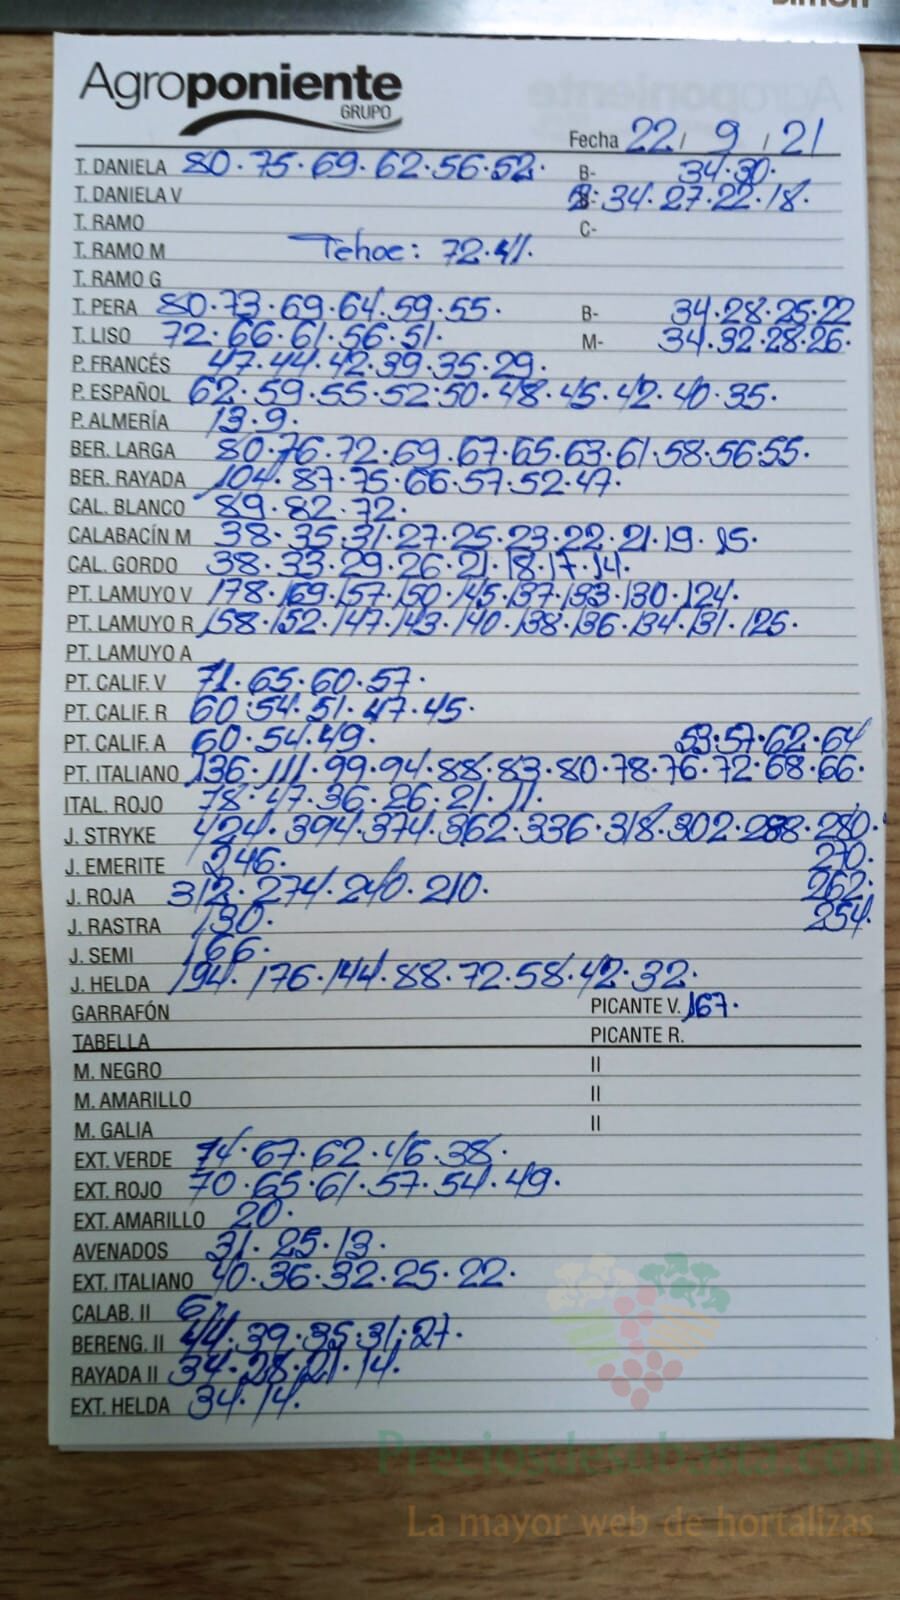 Agroponiente
GRUPO
Fecha 22/ 9 / 21
T. DANIELA 80·75·69·62·56·52· B- 34·30·
T. DANIELA V 34·27·22·18·
T. RAMO C-
T. RAMO M Tehoe: 72·41·
T. RAMO G
T. PERA 80·73·69·64·59·55· B- 34·28·25·22
T. LISO 72·66·61·56·51· M- 34·32·28·26·
P. FRANCÉS 47·44·42·39·35·29·
P. ESPAÑOL 62·59·55·52·50·48·45·42·40·35·
P. ALMERÍA 13·9·
BER. LARGA 80·76·72·69·67·65·63·61·58·56·55·
BER. RAYADA 104·87·75·66·57·52·47·
CAL. BLANCO 89·82·72·
CALABACÍN M 38·35·31·27·25·23·22·21·19·15·
CAL. GORDO 38·33·29·26·21·18·17·14·
PT. LAMUYO V 178·169·157·150·145·137·133·130·124·
PT. LAMUYO R 158·152·147·143·140·138·136·134·131·125·
PT. LAMUYO A
PT. CALIF. V 71·65·60·57·
PT. CALIF. R 60·54·51·47·45·
PT. CALIF. A 60·54·49· 53·57·62·64
PT. ITALIANO 136·111·99·94·88·83·80·78·76·72·68·66·
ITAL. ROJO 78·47·36·26·21·11·
J. STRYKE 424·394·374·362·336·318·302·288·280·
J. EMERITE 246· 270·
J. ROJA 312·274·240·210· 262·
J. RASTRA 130· 254·
J. SEMI 166·
J. HELDA 194·176·144·88·72·58·42·32·
GARRAFÓN PICANTE V. 167·
TABELLA PICANTE R.
M. NEGRO II
M. AMARILLO II
M. GALIA II
EXT. VERDE 74·67·62·46·38·
EXT. ROJO 70·65·61·57·54·49·
EXT. AMARILLO 20·
AVENADOS 31·25·13·
EXT. ITALIANO 40·36·32·25·22·
CALAB. II
BERENG. II 44·39·35·31·27·
RAYADA II 34·28·21·14·
EXT. HELDA 34·14·
Preciosdesubasta.com
La mayor web de hortalizas